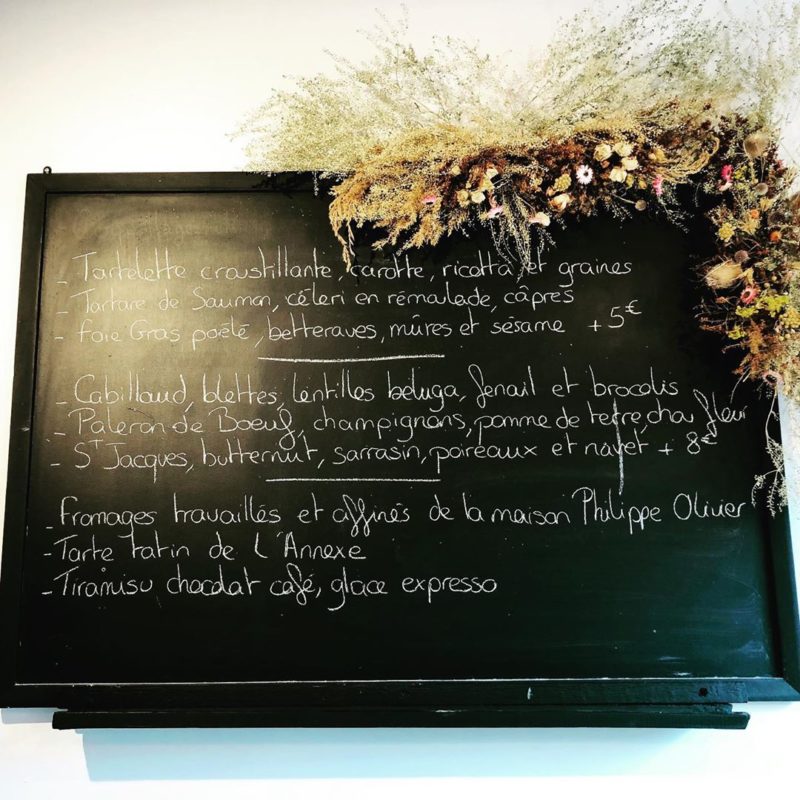 - Tartelette croustillante, carotte, ricotta et graines
- Tartare de Saumon, céleri en rémoulade, câpres
- Foie Gras poêlé, betteraves, mûres et sésame + 5€
- Cabillaud, blettes, lentilles beluga, fenouil et brocolis
- Paleron de Boeuf, champignons, pomme de terre, chou fleur
- ST Jacques, butternut, sarrasin, poireaux et navet + 8€
- Fromages travaillés et affinés de la maison Philippe Olivier
- Tarte tatin de l'Annexe
- Tiramisu chocolat café, glace expresso